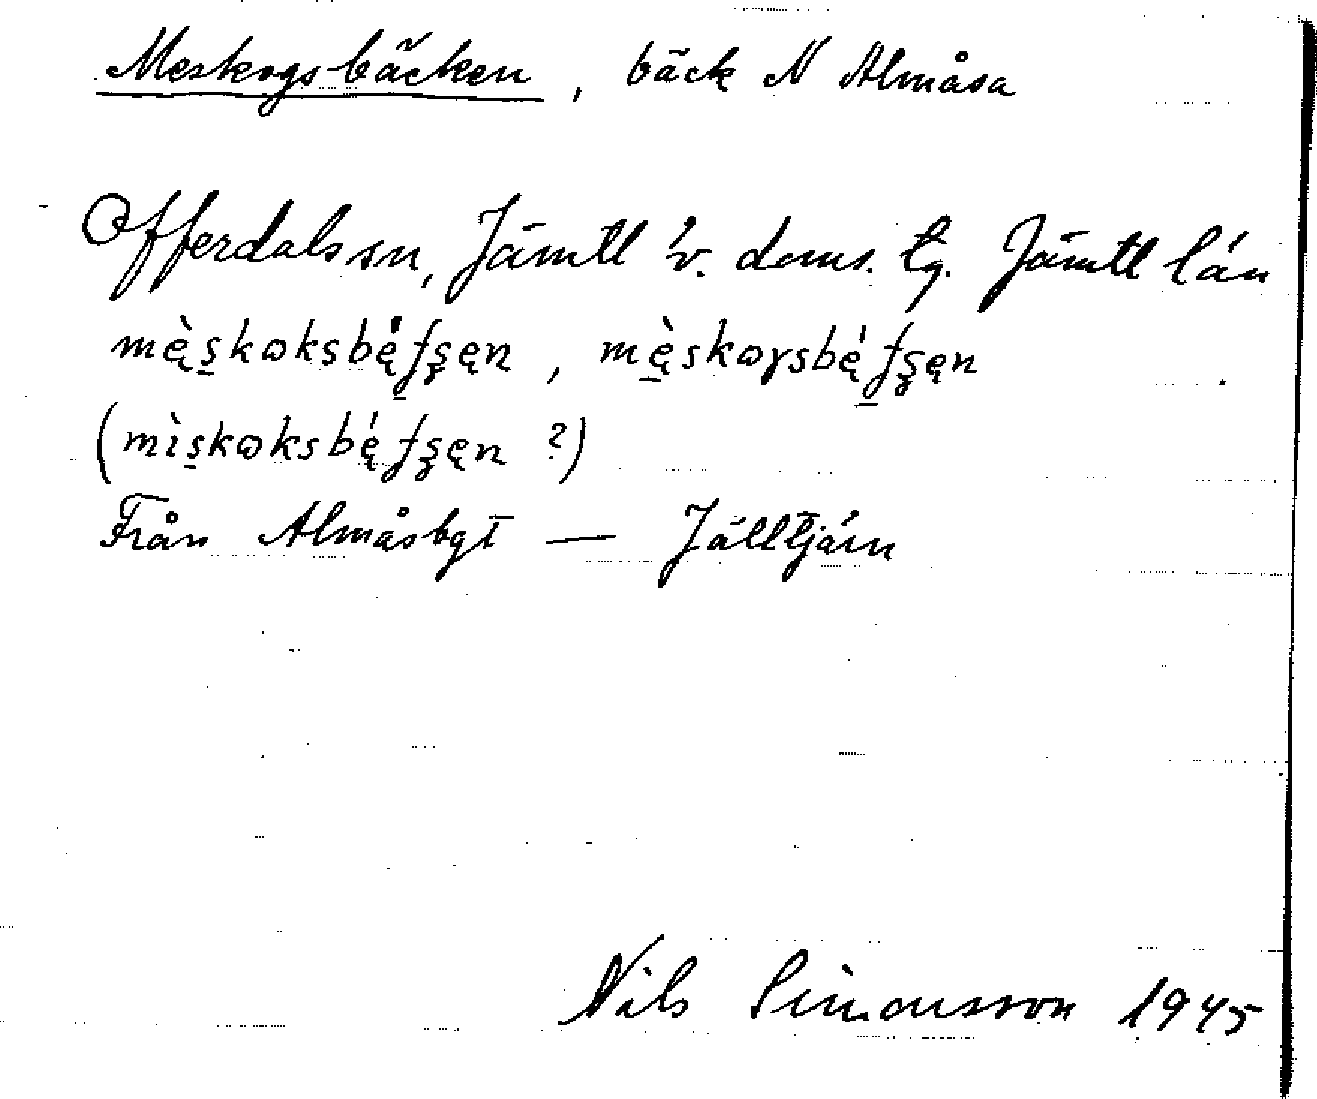 Meskogsbäcken, bäck N Almåsa
Offerdals sn, Jämtl v. doms. tg. Jämtl län
mę̀s̠kɷksbę́ɟʂęn, mę̠̀skɷɣsbę́ɟʂęn
(mìs̠kɷksbę́ɟʂęn ?)
Från Almåsbgt — Jälltjärn
Nils Simonsson 1945